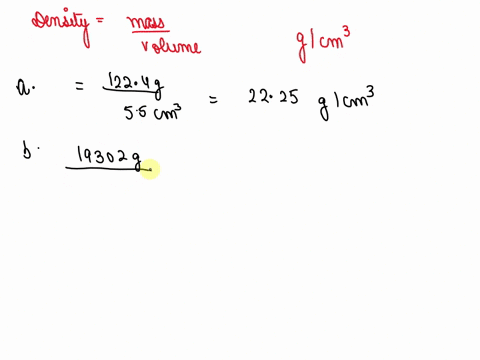 Density = mass / volume g/cm³
a. = 122.4g / 5.5 cm³ = 22.25 g/cm³
b. 19302g